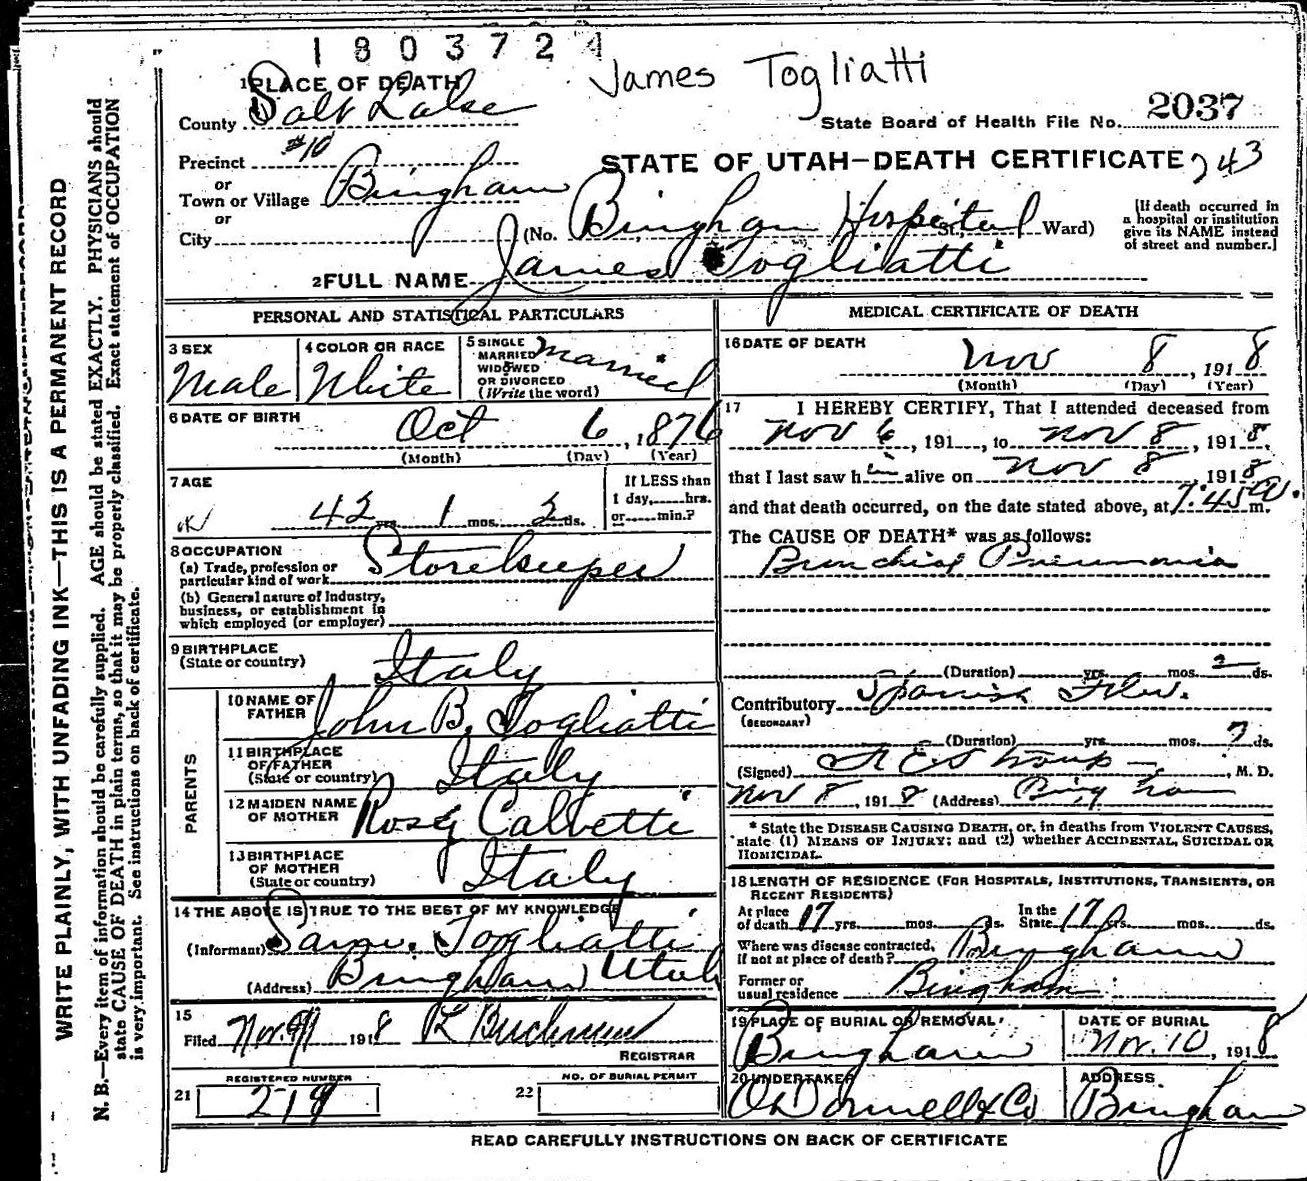 1803724
James Togliatti
1 PLACE OF DEATH
County Salt Lake
State Board of Health File No. 2037
Precinct #10
STATE OF UTAH—DEATH CERTIFICATE 243
or
Town or Village Bingham
or
City
(No. Bingham Hospital St. Ward)
(If death occurred in
a hospital or institution
give its NAME instead
of street and number.)
2 FULL NAME James Togliatti
PERSONAL AND STATISTICAL PARTICULARS
3 SEX
Male
4 COLOR OR RACE
White
5 SINGLE
MARRIED
WIDOWED
OR DIVORCED
(Write the word)
Married
6 DATE OF BIRTH
Oct 6, 1876
(Month) (Day) (Year)
7 AGE
OK
42 yrs. 1 mos. 2 ds.
If LESS than
1 day, hrs.
or min.?
8 OCCUPATION
(a) Trade, profession or
particular kind of work Storekeeper
(b) General nature of Industry,
business, or establishment in
which employed (or employer)
9 BIRTHPLACE
(State or country)
Italy
PARENTS
10 NAME OF
FATHER
John B. Togliatti
11 BIRTHPLACE
OF FATHER
(State or country)
Italy
12 MAIDEN NAME
OF MOTHER
Rosy Calvetti
13 BIRTHPLACE
OF MOTHER
(State or country)
Italy
14 THE ABOVE IS TRUE TO THE BEST OF MY KNOWLEDGE
(Informant) Togliatti
(Address) Bingham Utah
15
Filed Nov. 9 1918
REGISTRAR
REGISTERED NUMBER
21
NO. OF BURIAL PERMIT
22
MEDICAL CERTIFICATE OF DEATH
16 DATE OF DEATH
Nov 8, 1918
(Month) (Day) (Year)
17 I HEREBY CERTIFY, That I attended deceased from
Nov 6, 191, to Nov 8, 1918,
that I last saw him alive on Nov 8 1918
and that death occurred, on the date stated above, at 7:45 a. m.
The CAUSE OF DEATH* was as follows:
Bronchial Pneumonia
(Duration) yrs. mos. 2 ds.
Contributory Spanish Flu.
(SECONDARY)
(Duration) yrs. mos. 7 ds.
(Signed) , M. D.
Nov 8, 1918 (Address) Bingham
* State the DISEASE CAUSING DEATH, or, in deaths from VIOLENT CAUSES,
state (1) MEANS OF INJURY; and (2) whether ACCIDENTAL, SUICIDAL OR
HOMICIDAL.
18 LENGTH OF RESIDENCE (FOR HOSPITALS, INSTITUTIONS, TRANSIENTS, OR
RECENT RESIDENTS)
At place
of death 17 yrs. mos. ds.
In the
State 17 yrs. mos. ds.
Where was disease contracted,
if not at place of death? Bingham
Former or
usual residence Bingham
19 PLACE OF BURIAL OR REMOVAL
Bingham
DATE OF BURIAL
Nov. 10, 1918
20 UNDERTAKER
O'Donnell & Co
ADDRESS
Bingham
READ CAREFULLY INSTRUCTIONS ON BACK OF CERTIFICATE
WRITE PLAINLY, WITH UNFADING INK—THIS IS A PERMANENT RECORD
N. B.—Every item of information should be carefully supplied. AGE should be stated EXACTLY. PHYSICIANS should
state CAUSE OF DEATH in plain terms, so that it may be properly classified. Exact statement of OCCUPATION
is very important. See instructions on back of certificate.